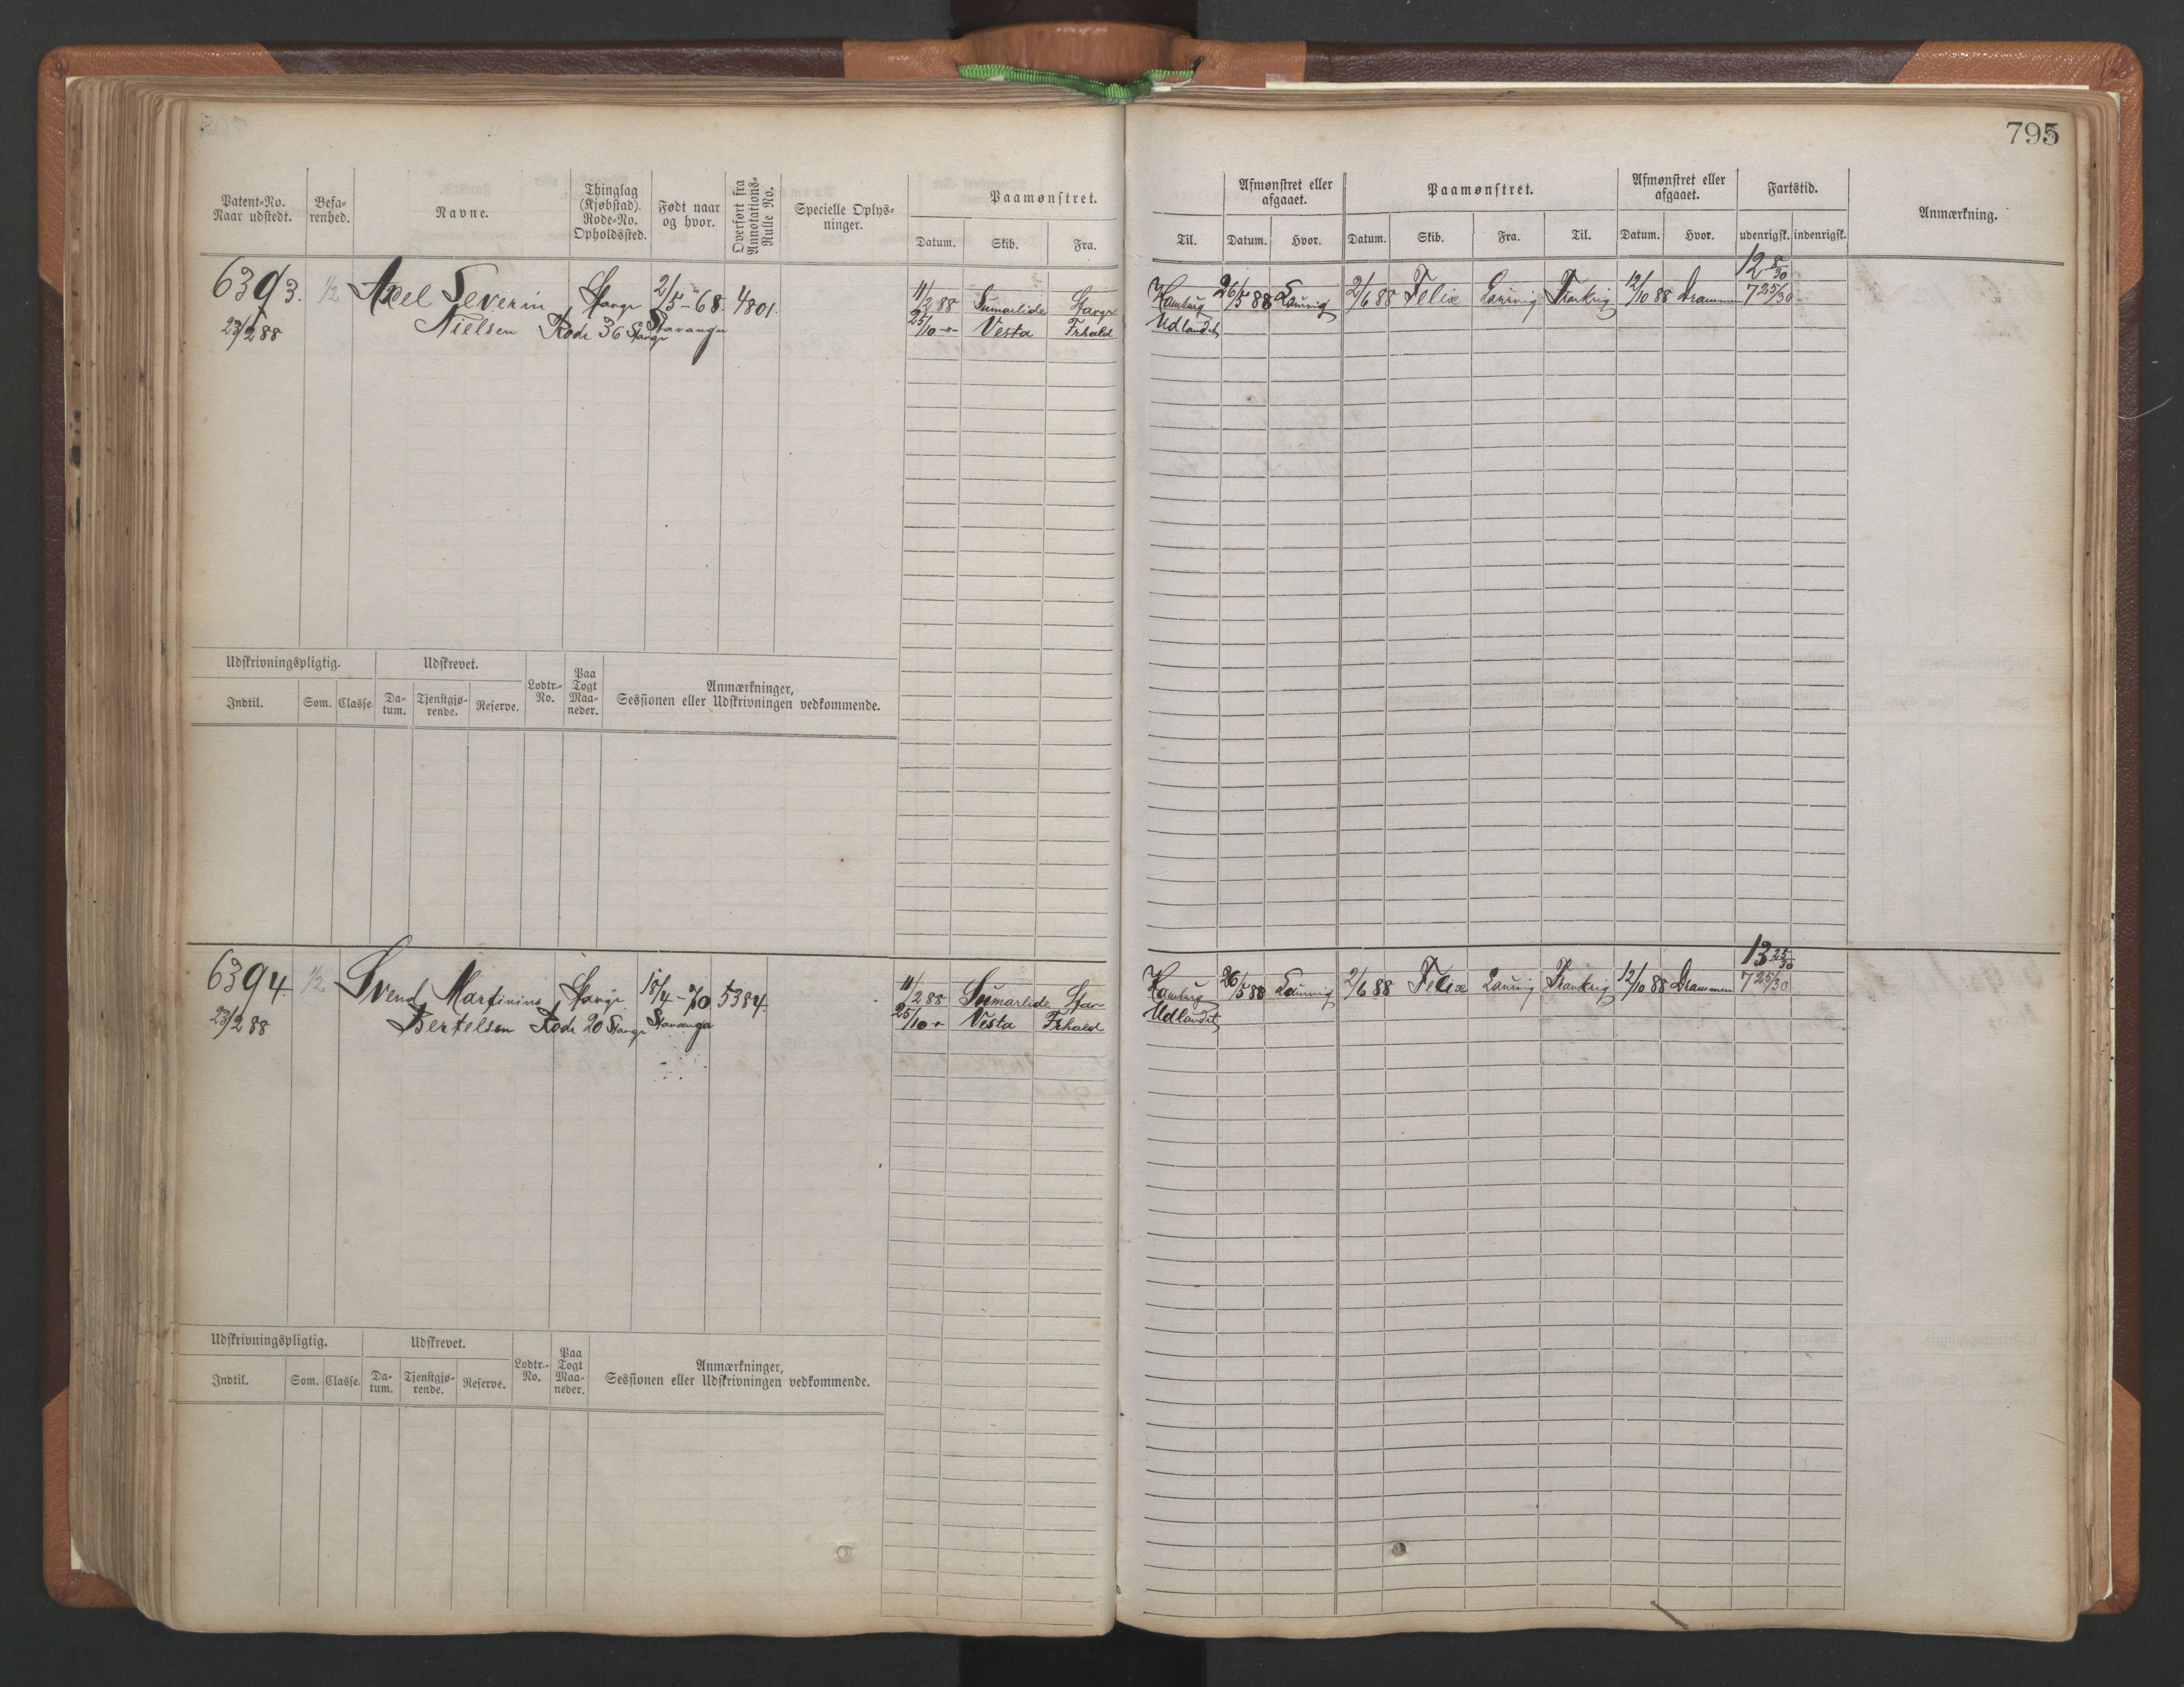 795
Patent-No. Naar udstedt.
Befarenhed.
Navne.
Thinglag (Kjøbstad). Rode-No. Opholdssted.
Født naar og hvor.
Overført fra Annotations-Rulle No.
Specielle Oplysninger.
Paamønstret.
Datum. Skib. Fra.
Til.
Afmønstret eller afgaaet.
Datum. Hvor.
Paamønstret.
Datum. Skib. Fra. Til.
Afmønstret eller afgaaet.
Datum. Hvor.
Fartstid.
udenrigsk. indenrigsk.
Anmærkning.
12 8/30
6393. 1/2 Axel Severin Stavgr 2/5-68. 4801. 11/2 88 Sumarlide Stavgr Hamburg 26/5 88 Laurvig 2/6 88 Felix Laurvig Frankrig 12/10 88 Drammen 7 25/30
23/2 88 Nielsen Rode 36 Stavgr Stavanger 25/10 -"- Vesta Frhald Udlandet
Udskrivningspligtig. Udskrevet. Lodtr.-No. Paa Togt Maaneder. Anmærkninger, Sessionen eller Udskrivningen vedkommende.
Indtil. Som. Classe. Datum. Tjenstgjørende. Reserve.
13 25/30
6394. 1/2 Svend Martinius Stavgr 18/4-70 5384. 11/2 88 Sumarlide Stav Hamburg 26/5 88 Laurvig 2/6 88 Felix Laurvig Frankrig 12/10 88 Drammen 7 25/30
23/2 88 Bertelsen Rode 20 Stavgr Stavanger 25/10 -"- Vesta Frhald Udlandet
Udskrivningspligtig. Udskrevet. Lodtr.-No. Paa Togt Maaneder. Anmærkninger, Sessionen eller Udskrivningen vedkommende.
Indtil. Som. Classe. Datum. Tjenstgjørende. Reserve.